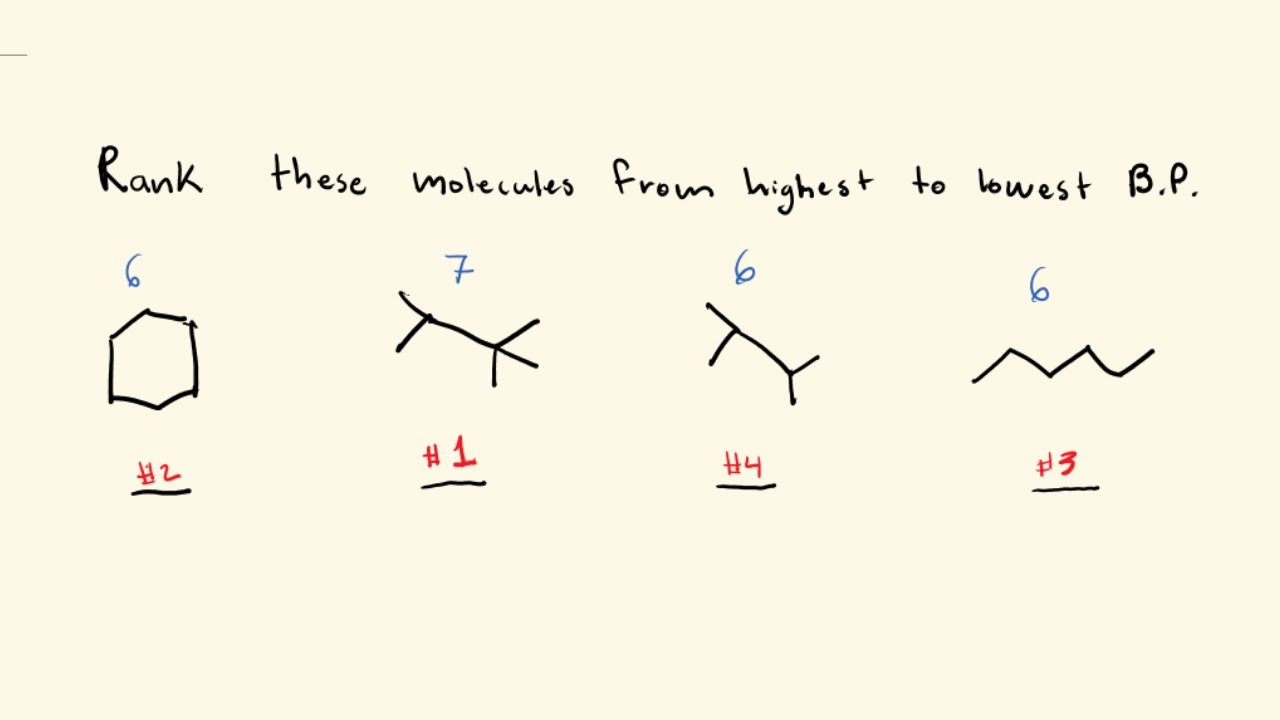 Rank these molecules from highest to lowest B.P.
6 7 6 6
#2 #1 #4 #3